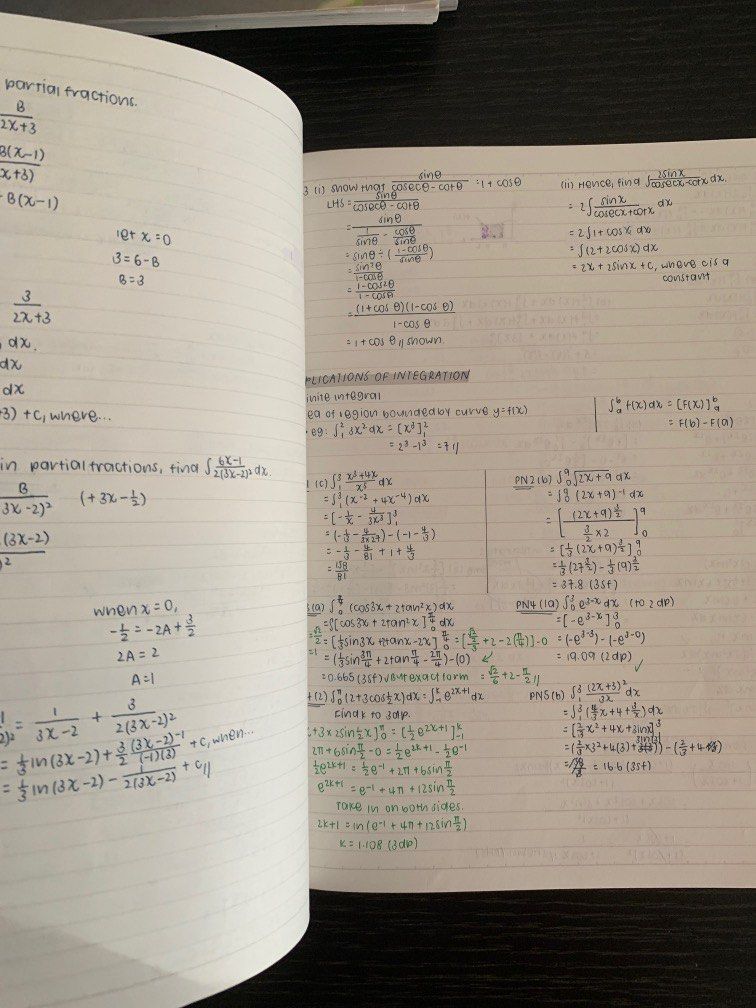 partial fractions.
B
2x+3
B(x-1)
x+3)
B(x-1)
let x=0
3=6-B
B=3
3
2x+3
dx.
dx
dx
+3) +c, where...
in partial fractions, find ∫ 6x-1 / 2(3x-2)² dx.
B
3x-2)² (+3x-½)
(3x-2)
when x=0,
-½ = -2A + 3/2
2A = 2
A=1
= 1/(3x-2) + 3/(2(3x-2)²)
= ⅓ ln(3x-2) + 3/2 (3x-2)⁻¹/(-1)(3) + c, when...
= ⅓ ln(3x-2) - 1/(2(3x-2)) + c//
3 (i) show that sinθ/(cosecθ-cotθ) = 1+cosθ
LHS = sinθ/(cosecθ-cotθ)
= sinθ/(1/sinθ - cosθ/sinθ)
= sinθ ÷ ((1-cosθ)/sinθ)
= sin²θ/(1-cosθ)
= (1-cos²θ)/(1-cosθ)
= (1+cosθ)(1-cosθ)/(1-cosθ)
= 1+cosθ// shown.
(ii) Hence, find ∫ 2sinx/(cosecx-cotx) dx.
= 2∫ sinx/(cosecx+cotx) dx
= 2∫1+cosx dx
= ∫(2+2cosx) dx
= 2x+2sinx+c, where c is a
constant
PLICATIONS OF INTEGRATION
inite integral
ea of region bounded by curve y=f(x)
eg: ∫₁² 3x² dx = [x³]₁²
= 2³-1³ = 7//
∫ₐᵇ f(x) dx = [F(x)]ₐᵇ
= F(b)-F(a)
(c) ∫₁³ (x³+4x)/x⁵ dx
= ∫₁³ (x⁻²+4x⁻⁴) dx
= [-1/x - 4/(3x³)]₁³
= (-⅓ - 4/(3×27)) - (-1-4/3)
= -⅓ - 4/81 + 1 + 4/3
= 158/81
PN2(b) ∫₀⁹ √(2x+9) dx
= ∫₀⁹ (2x+9)⁻¹ dx
= [(2x+9)^(3/2) / (3/2 × 2)]₀⁹
= [⅓(2x+9)^(3/2)]₀⁹
= ⅓(27^(3/2)) - ⅓(9)^(3/2)
= 37.8 (3sf)
(a) ∫₀^(π/4) (cos3x+2tan²x) dx
= [⅓sin3x+2tanx-2x]₀^(π/4)
= (⅓sin 3π/4 + 2tan π/4 - 2π/4) - (0)
= 0.665 (3sf) √ But exact form = √2/6 + 2 - π/2 //
PN4(1a) ∫₀³ e³⁻ˣ dx (to 2dp)
= [-e³⁻ˣ]₀³
= (-e³⁻³) - (-e³⁻⁰)
= 19.09 (2dp)
(2) ∫₀^π (2+3cos½x) dx = ∫₋₁ᵏ e^(2x+1) dx
Find k to 3dp.
+3×2sin½x]₀^π = [½e^(2x+1)]₋₁ᵏ
2π+6sin π/2 - 0 = ½e^(2k+1) - ½e⁻¹
½e^(2k+1) = ½e⁻¹ + 2π + 6sin π/2
e^(2k+1) = e⁻¹ + 4π + 12sin π/2
Take ln on both sides.
2k+1 = ln(e⁻¹+4π+12sin π/2)
k = 1.108 (3dp)
PN5(b) ∫₁³ (2x+3)²/3x dx
= ∫₁³ (4/3 x + 4 + 3/x) dx
= [⅔x² + 4x + 3lnx]³
= 16.6 (3sf)